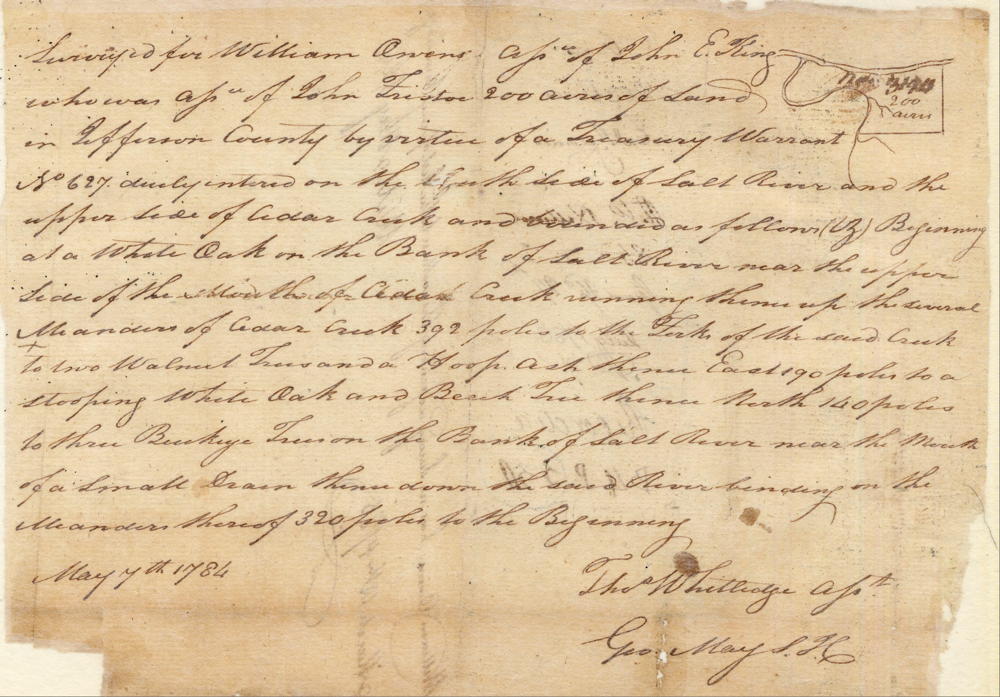 Surveyed for William Owens Assee of John E. King
who was Assee of John Tristoe 200 acres of Land
in Jefferson County by virtue of a Treasury Warrant
No 627 duly entered on the South side of Salt River and the
upper side of Cedar Creek and bounded as follows (Viz) Beginning
at a White Oak on the Bank of Salt River near the upper
side of the Mouth of Cedar Creek running thence up the several
Meanders of Cedar Creek 392 poles to the Forks of the said Creek
to two Walnut Trees and a Hoop Ash thence East 190 poles to a
stooping White Oak and Beech Tree thence North 140 poles
to three Buckeye Trees on the Bank of Salt River near the Mouth
of a Small Drain thence down the said River binding on the
Meanders thereof 320 poles to the Beginning
May 7th 1784
Thos Whitledge Asst
Geo. May S.J.C
200
acres